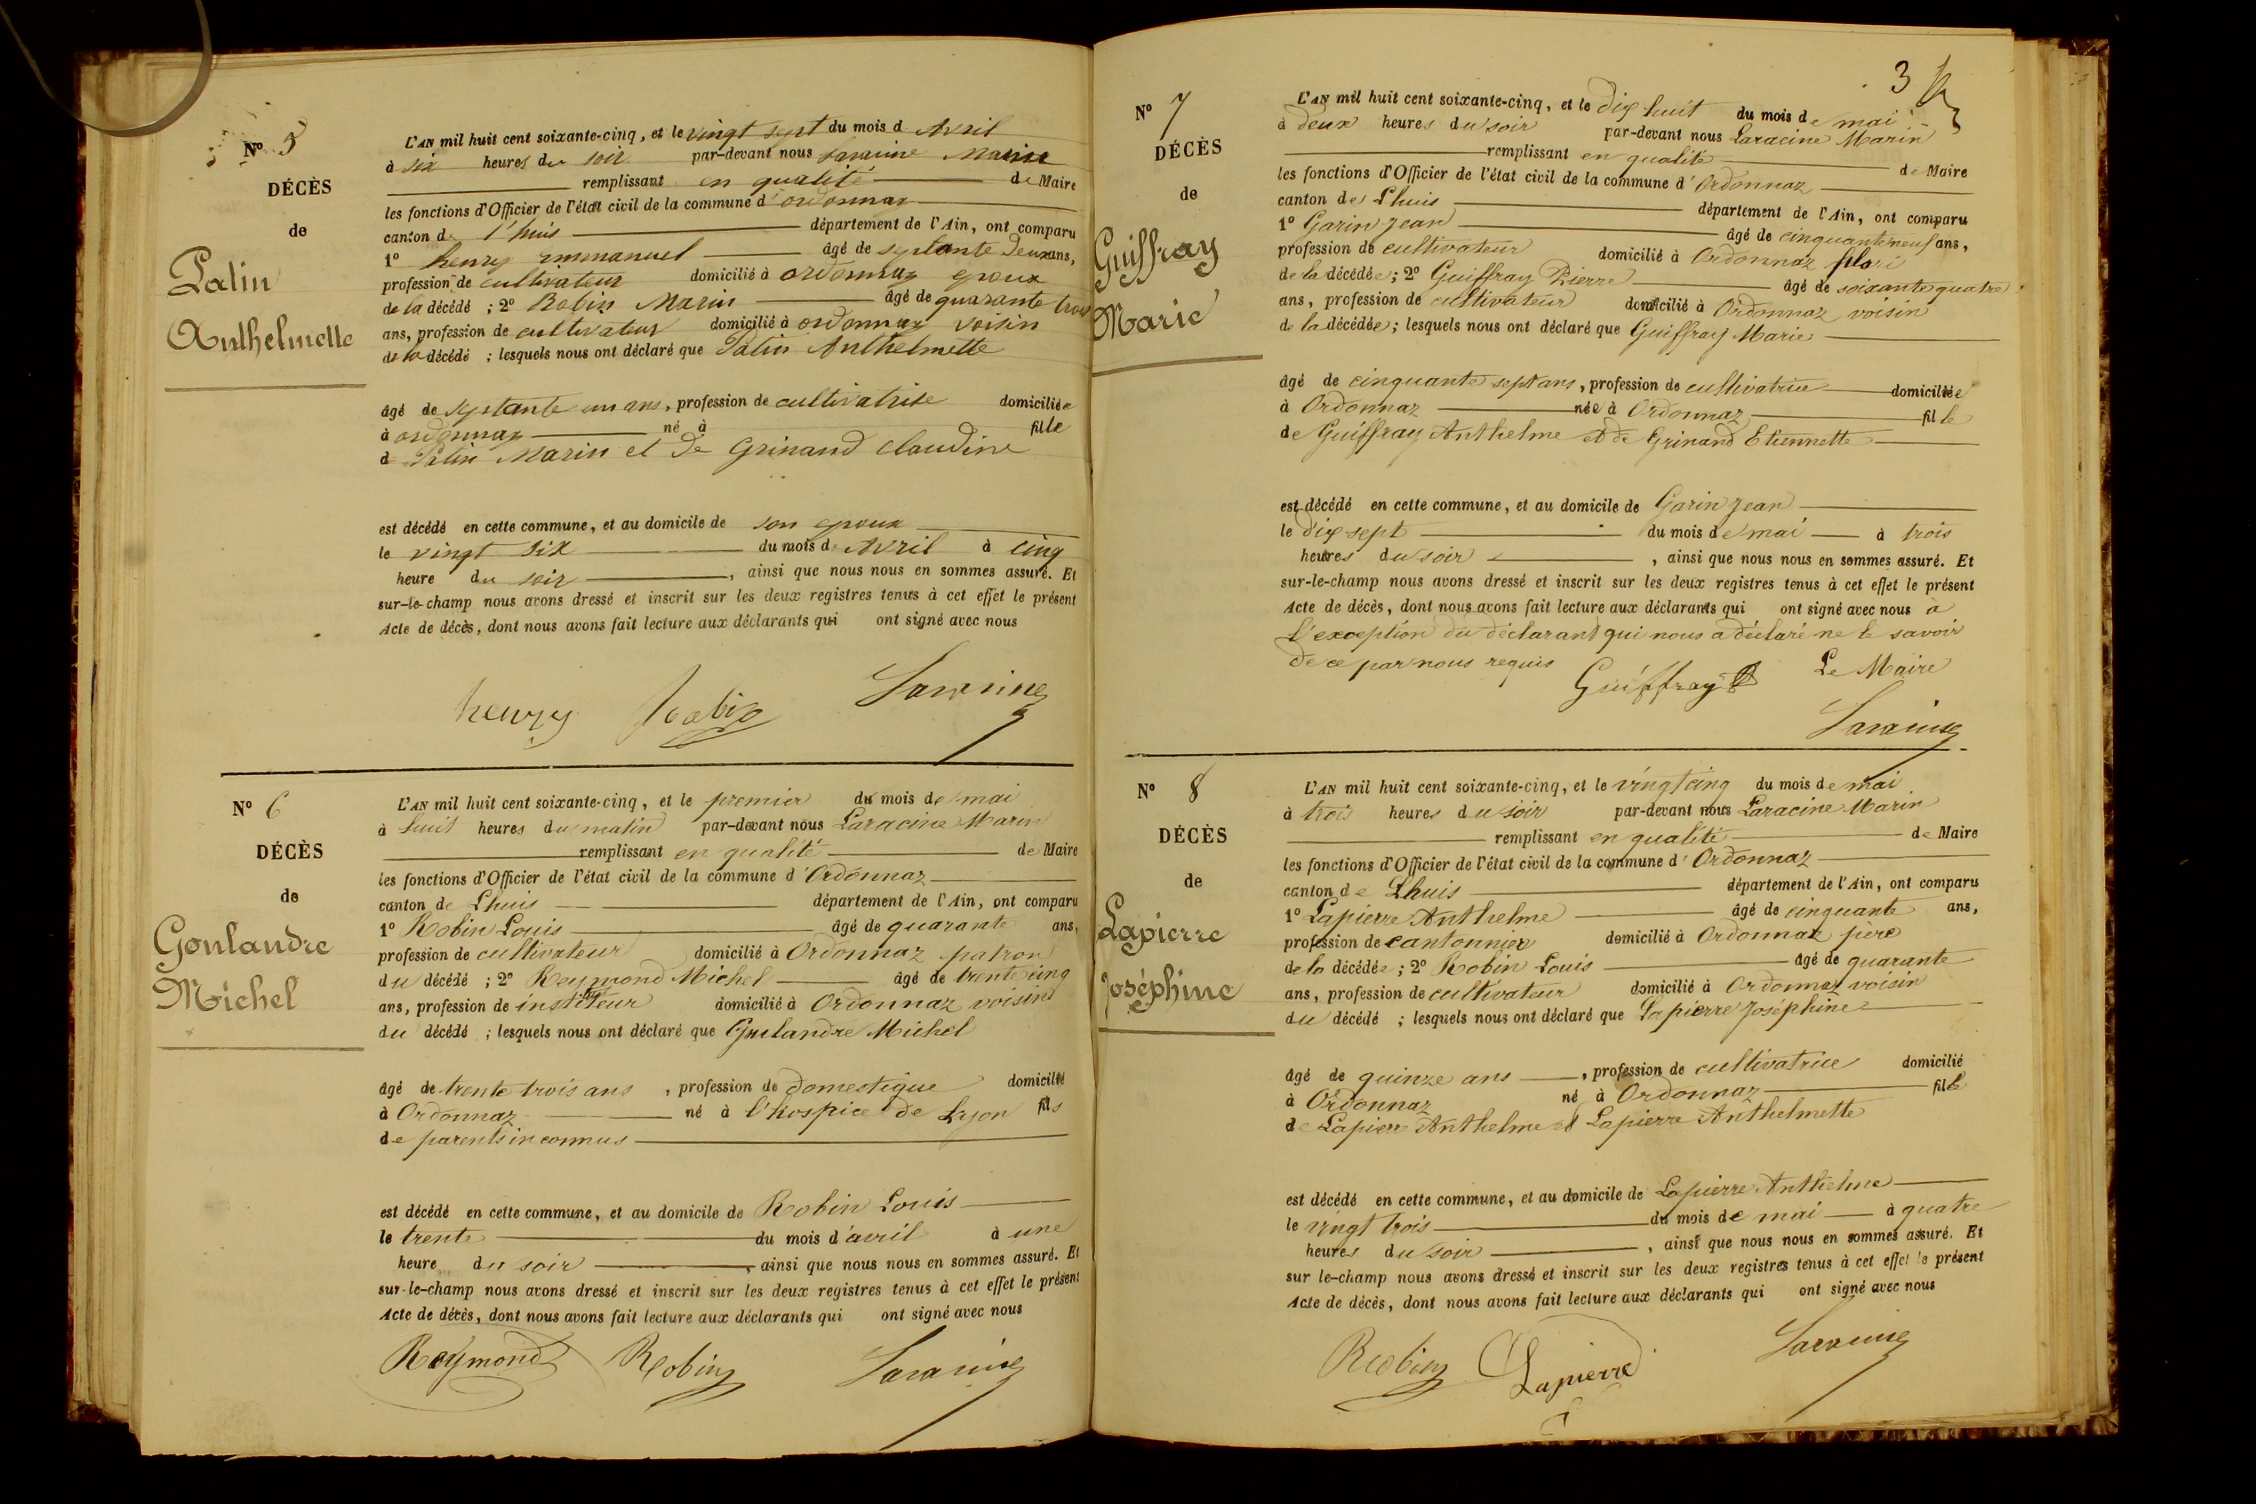 N° 5
DÉCÈS
de
Patin
Anthelmette
L'AN mil huit cent soixante-cinq, et le vingt sept du mois d Avril
à six heures du soir par-devant nous Laracine Marin
remplissant en qualité de Maire
les fonctions d'Officier de l'état civil de la commune d' ordonnaz
canton de l'huis département de l'Ain, ont comparu
1° henry emmanuel âgé de septante deux ans,
profession de cultivateur domicilié à ordonnaz epoux
de la décédé ; 2° Robin Marin âgé de quarante trois
ans, profession de cultivateur domicilié à ordonnaz voisin
de la décédé ; lesquels nous ont déclaré que Patin Anthelmette
âgé de septante un ans, profession de cultivatrise domiciliée
à ordonnaz né à fille
d Patin Marin et de Grinand Claudine
est décédé en cette commune, et au domicile de son epoux
le vingt six du mois d' Avril à cinq
heure du soir , ainsi que nous nous en sommes assuré. Et
sur-le-champ nous avons dressé et inscrit sur les deux registres tenus à cet effet le présent
Acte de décès, dont nous avons fait lecture aux déclarants qui ont signé avec nous
henry Robin Laracine
N° 6
DÉCÈS
de
Goulandre
Michel
L'AN mil huit cent soixante-cinq, et le premier du mois de mai
à huit heures du matin par-devant nous Laracine Marin
remplissant en qualité de Maire
les fonctions d'Officier de l'état civil de la commune d' Ordonnaz
canton de Lhuis département de l'Ain, ont comparu
1° Robin Louis âgé de quarante ans,
profession de cultivateur domicilié à Ordonnaz patron
du décédé ; 2° Reymond Michel âgé de trente cinq
ans, profession de instituteur domicilié à Ordonnaz voisins
du décédé ; lesquels nous ont déclaré que Goulandre Michel
âgé de trente trois ans , profession de domestique domicilié
à Ordonnaz né à l'hospice de Lyon fils
de parents inconnus
est décédé en cette commune, et au domicile de Robin Louis
le trente du mois d'avril à une
heure du soir , ainsi que nous nous en sommes assuré. Et
sur-le-champ nous avons dressé et inscrit sur les deux registres tenus à cet effet le présent
Acte de décès, dont nous avons fait lecture aux déclarants qui ont signé avec nous
Reymond Robin Laracine
3
N° 7
DÉCÈS
de
Guiffray
Marie
L'AN mil huit cent soixante-cinq, et le dix huit du mois de mai
à deux heures du soir par-devant nous Laracine Marin
remplissant en qualité de Maire
les fonctions d'Officier de l'état civil de la commune d' Ordonnaz
canton de Lhuis département de l'Ain, ont comparu
1° Garin Jean âgé de cinquante neuf ans,
profession de cultivateur domicilié à Ordonnaz
de la décédée ; 2° Guiffray Pierre âgé de soixante quatre
ans, profession de cultivateur domicilié à Ordonnaz voisin
de la décédée ; lesquels nous ont déclaré que Guiffray Marie
âgé de cinquante sept ans, profession de cultivatrice domiciliée
à Ordonnaz née à Ordonnaz fille
de Guiffray Anthelme et de Grinand Etiennette
est décédé en cette commune, et au domicile de Garin Jean
le dix sept du mois de mai à trois
heures du soir , ainsi que nous nous en sommes assuré. Et
sur-le-champ nous avons dressé et inscrit sur les deux registres tenus à cet effet le présent
Acte de décès, dont nous avons fait lecture aux déclarants qui ont signé avec nous à
l'exception du déclarant qui nous a déclaré ne le savoir
de ce par nous requis Guiffray P Le Maire
Laracine
N° 8
DÉCÈS
de
Lapierre
Joséphine
L'AN mil huit cent soixante-cinq, et le vingt cinq du mois de mai
à trois heures du soir par-devant nous Laracine Marin
remplissant en qualité de Maire
les fonctions d'Officier de l'état civil de la commune d' Ordonnaz
canton de Lhuis département de l'Ain, ont comparu
1° Lapierre Anthelme âgé de cinquante ans,
profession de cantonnier domicilié à Ordonnaz père
de la décédée ; 2° Robin Louis âgé de quarante
ans, profession de cultivateur domicilié à Ordonnaz voisin
du décédé ; lesquels nous ont déclaré que Lapierre Joséphine
âgé de quinze ans , profession de cultivatrice domicilié
à Ordonnaz né à Ordonnaz fille
de Lapierre Anthelme et Lapierre Anthelmette
est décédé en cette commune, et au domicile de Lapierre Anthelme
le vingt trois du mois de mai à quatre
heures du soir , ainsi que nous nous en sommes assuré. Et
sur le-champ nous avons dressé et inscrit sur les deux registres tenus à cet effet le présent
Acte de décès, dont nous avons fait lecture aux déclarants qui ont signé avec nous
Robin Lapierre Laracine